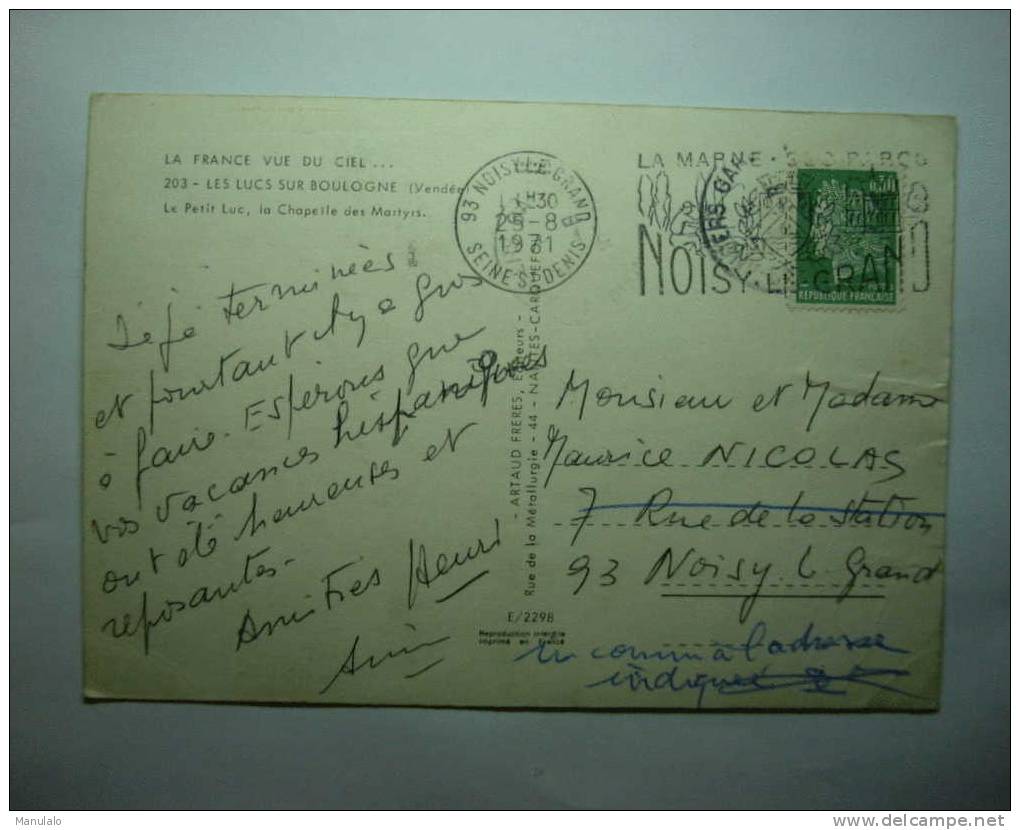 LA FRANCE VUE DU CIEL ...
203 - LES LUCS SUR BOULOGNE (Vendée)
Le Petit Luc, la Chapelle des Martyrs.
93 NOISY-LE-GRAND
25-8
1971
SEINE-S-DENIS
LA MARNE · SES PARCS
NOISY-LE-GRAND
0,30
REPUBLIQUE FRANÇAISE
Déjà terminées
et pourtant il y a gros
à faire. Espérons que
vos vacances hispaniques
ont été heureuses et
reposantes.
Amitiés Henri
- ARTAUD FRERES, Editeurs -
Rue de la Métallurgie - 44 - NANTES-CARQUEFOU
Monsieur et Madame
Maurice NICOLAS
7 Rue de la Station
93 Noisy le Grand
E/2298
Reproduction interdite
Imprimé en France
inconnu à l'adresse
indiquée
Manulalo
delcampe.net